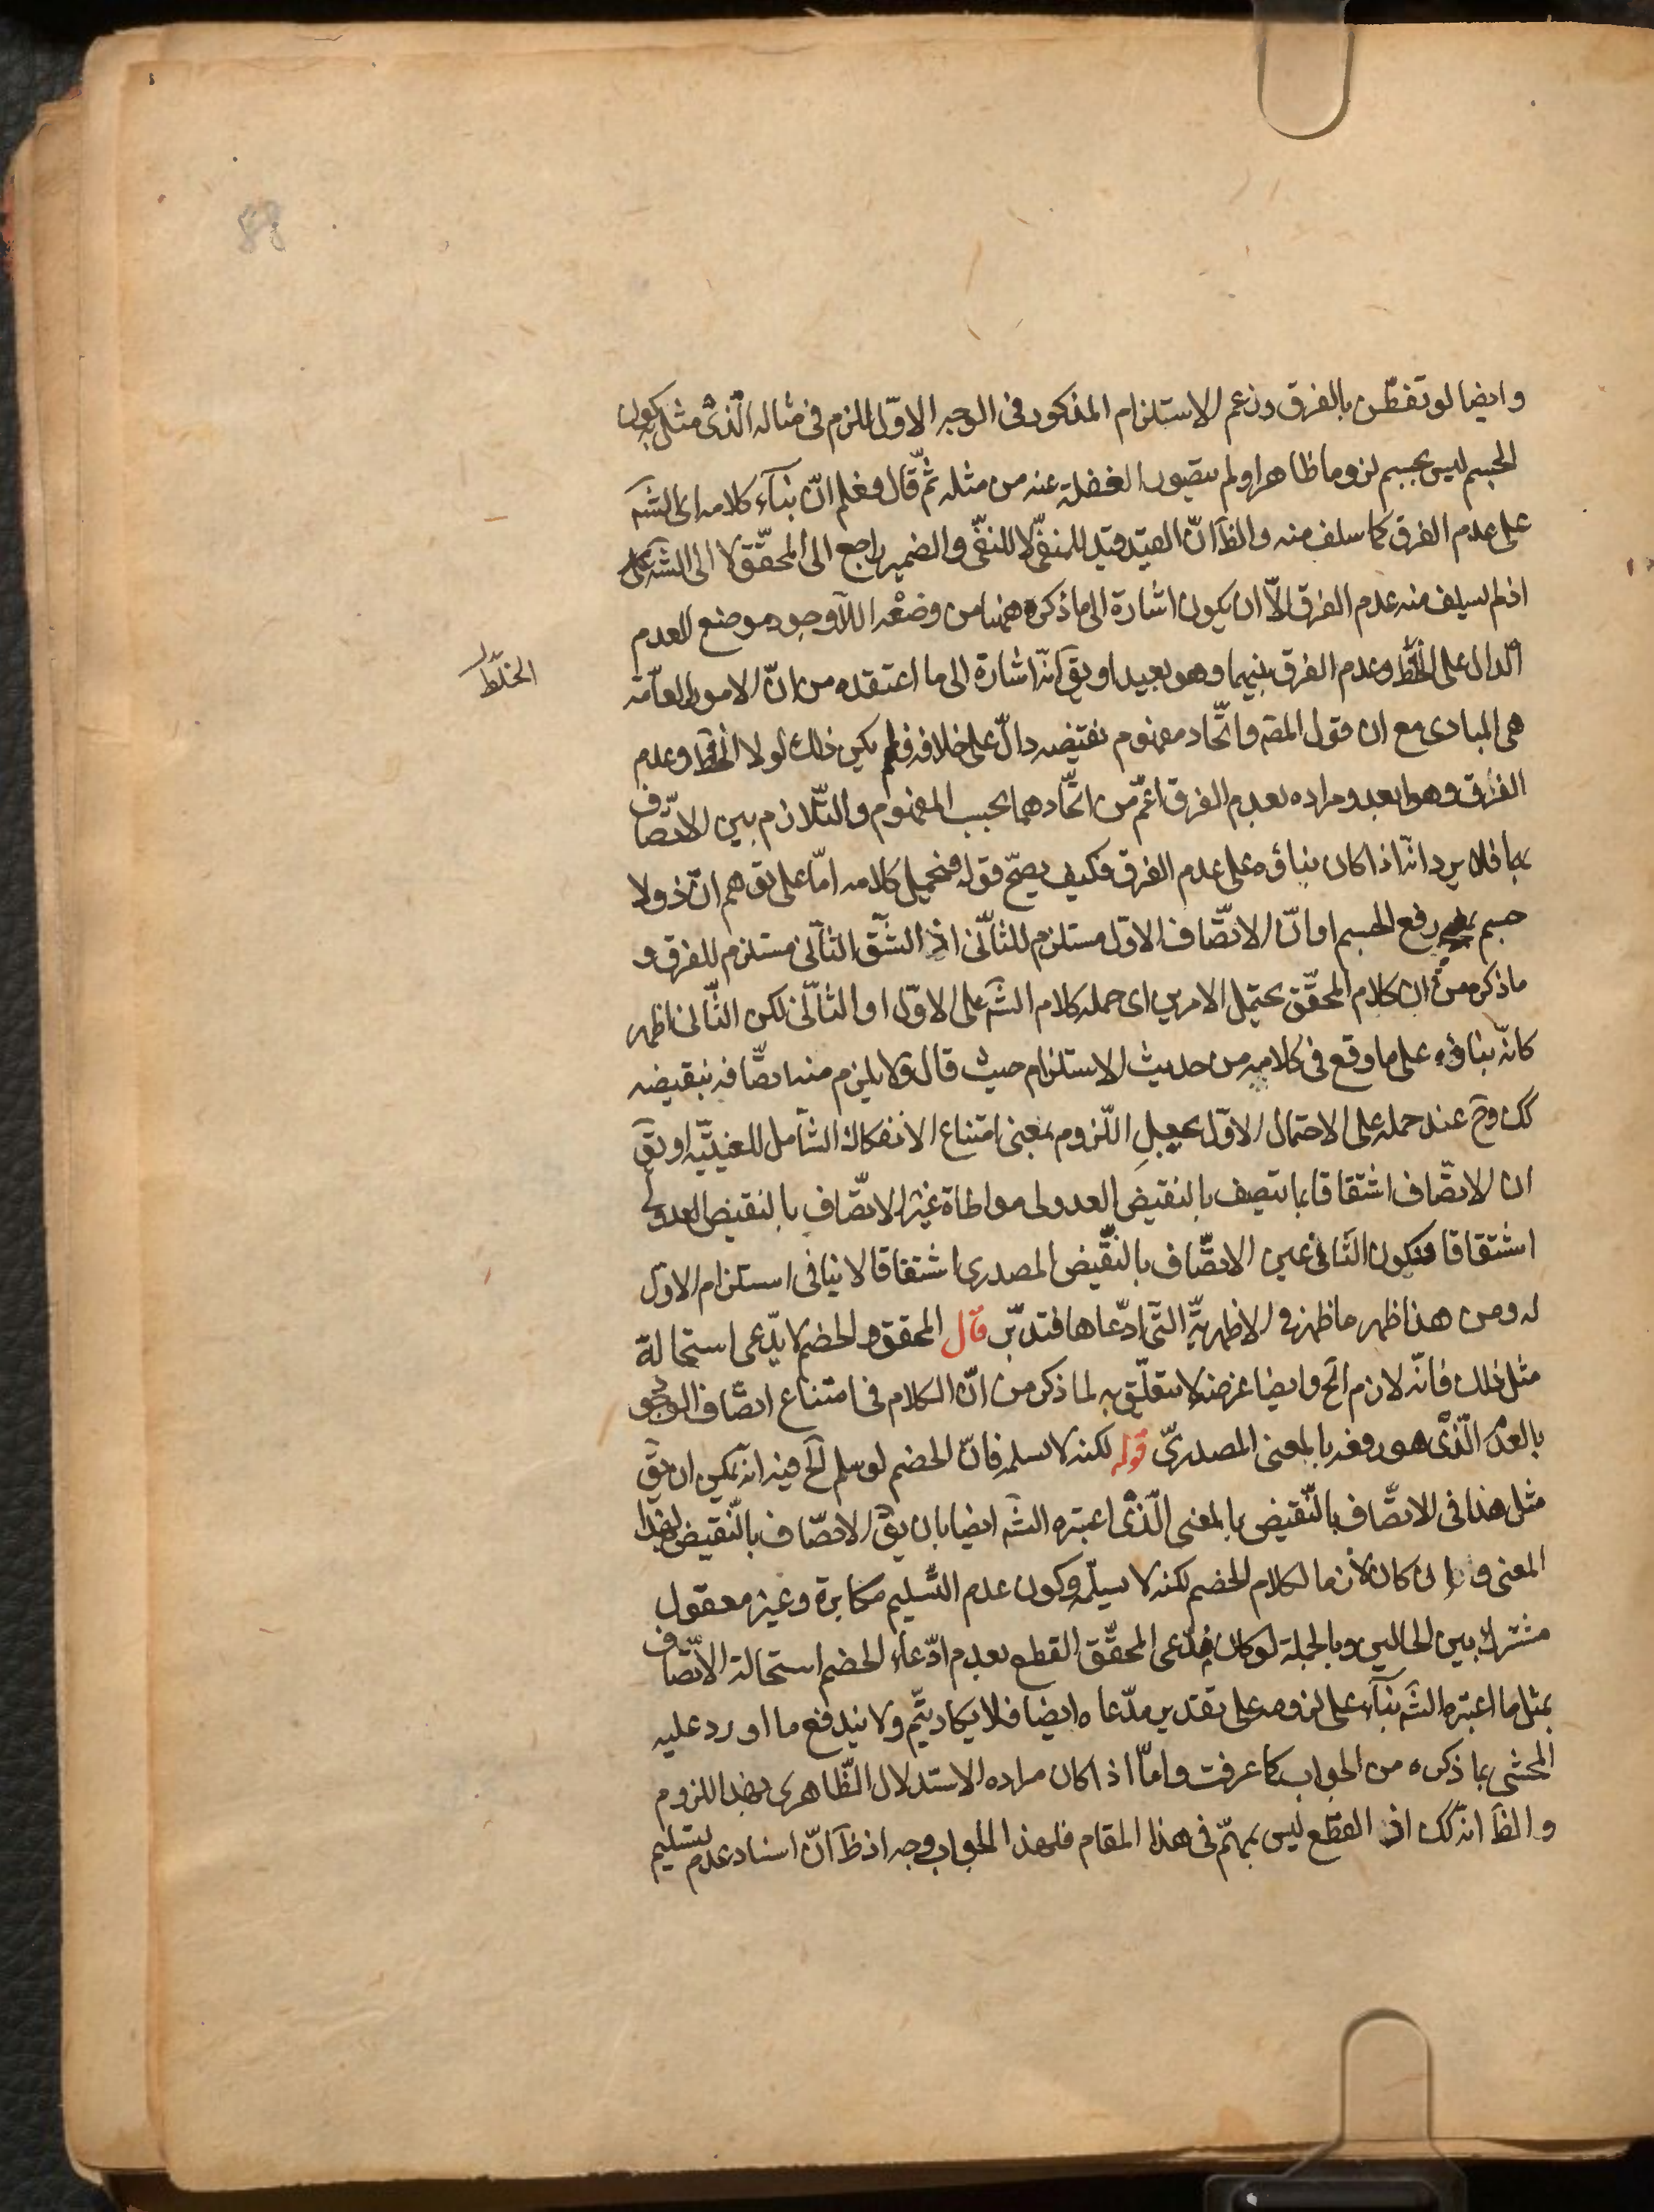 88
وايضا لو تفطّن بالفرق وزعم الاستلزام المذكور فى الوجه الاوّل للزم فى مثاله الّذى مثل به كون
الجسم ليس بجسم لزوما ظاهرا ولم يتصور الغفلة عنه من مثله ثمّ قال فعلم انّ بناء كلامه اى الشّه
على عدم الفرق كما سلف منه والظّ انّ القيد قيد للمنفىّ لا للنفى والضمير راجع الى المحقّق لا الى الشّه
اذ لم يسلف منه عدم الفرق الّا ان يكون اشارة الى ما ذكره ههنا من وضعه اللّاوجود موضع العدم
الدالّ على الخلط وعدم الفرق بينهما وهو بعيد او يق انّه اشارة الى ما اعتقده من انّ الامور العامّة
الخلط
هى المبادى مع ان قول المصّ واتّحاد مفهوم نقيضه دالّ على خلافه فلم يكن ذلك لولا الخلط وعدم
الفرق وهو ابعد ومراده بعدم الفرق اعمّ من اتّحادهما بحسب المفهوم والتّلازم بين الاتّصاف
بهما فلا يرد انّه اذا كان بناؤه على عدم الفرق فكيف يصحّ قوله فنحمل كلامه امّا على توهم انّ ذو لا
جسم رفع الجسم او انّ الاتّصاف الاول مستلزم للثّانى اذ الشّق الثّانى مستلزم للفرق و
ما ذكره من ان كلام المحقّق يحتمل الامرين اى حمله كلام الشّه على الاوّل او الثّانى لكن الثّانى اظهر
كانّه بناؤه على ما وقع فى كلامه من حديث الاستلزام حيث قال ولا يلزم منه اتصّافه بنقيضه
كك وح عند حمله على الاحتمال الاوّل يحمل اللّزوم بمعنى امتناع الانفكاك الشّامل للعينيّة او يق
ان الاتصّاف اشتقاقا بما يتصف بالنقيض العدولى مواطاة غير الاتّصاف بالنقيض العدولى
اشتقاقا فيكون الثّانى عين الاتصّاف بالنّقيض المصدرى اشتقاقا لا ينافى استلزام الاول
له ومن هذا ظهر ما ظهر فى الاظهريّة الّتى ادّعاها فتدبّر قال المحقق والخصم لا يدّعى استحالة
مثل ذلك فانّه لازم الخ وايضا غرضه لا يتعلّق به لما ذكر من انّ الكلام فى امتناع اتصّاف الوجود
بالعدم الّذى هو رفعه بالمعنى المصدرىّ قوله لكنه لا يسلمه فانّ الخصم لو سلم الخ فيه انه يمكن ان يق
مثل هذا فى الاتصّاف بالنّقيض بالمعنى الّذى اعتبره الشّه ايضا بان يق الاتصّاف بالنّقيض بهذا
المعنى وان كان لازما لكلام الخصم لكنه لا يسلّمه وكون عدم التّسليم مكابرة وغير معقول
مشترك بين الحالين وبالجملة لو كان مدّعى المحقّق القطع بعدم ادّعاء الخصم استحالة الاتّصاف
بمثل ما اعتبره الشّه بناء على لزومه على تقدير مدّعاه ايضا فلا يكاد يتّم ولا يندفع ما اورد عليه
المحشى بما ذكره من الجواب كما عرفت وامّا اذا كان مراده الاستدلال الظّاهرى بهذا اللزوم
والظّ انه كك اذ القطع ليس بمهمّ فى هذا المقام فلهذا الجواب وجه اذ ظّ انّ اسناد عدم تسليم